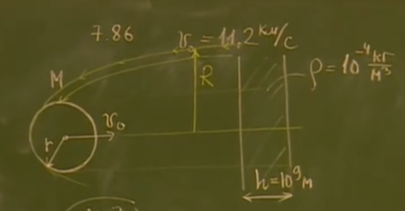 7.86
v₀ = 11.2 км/с
M
R
ρ = 10⁻⁴ кг/м³
v₀
r
h = 10⁹ м